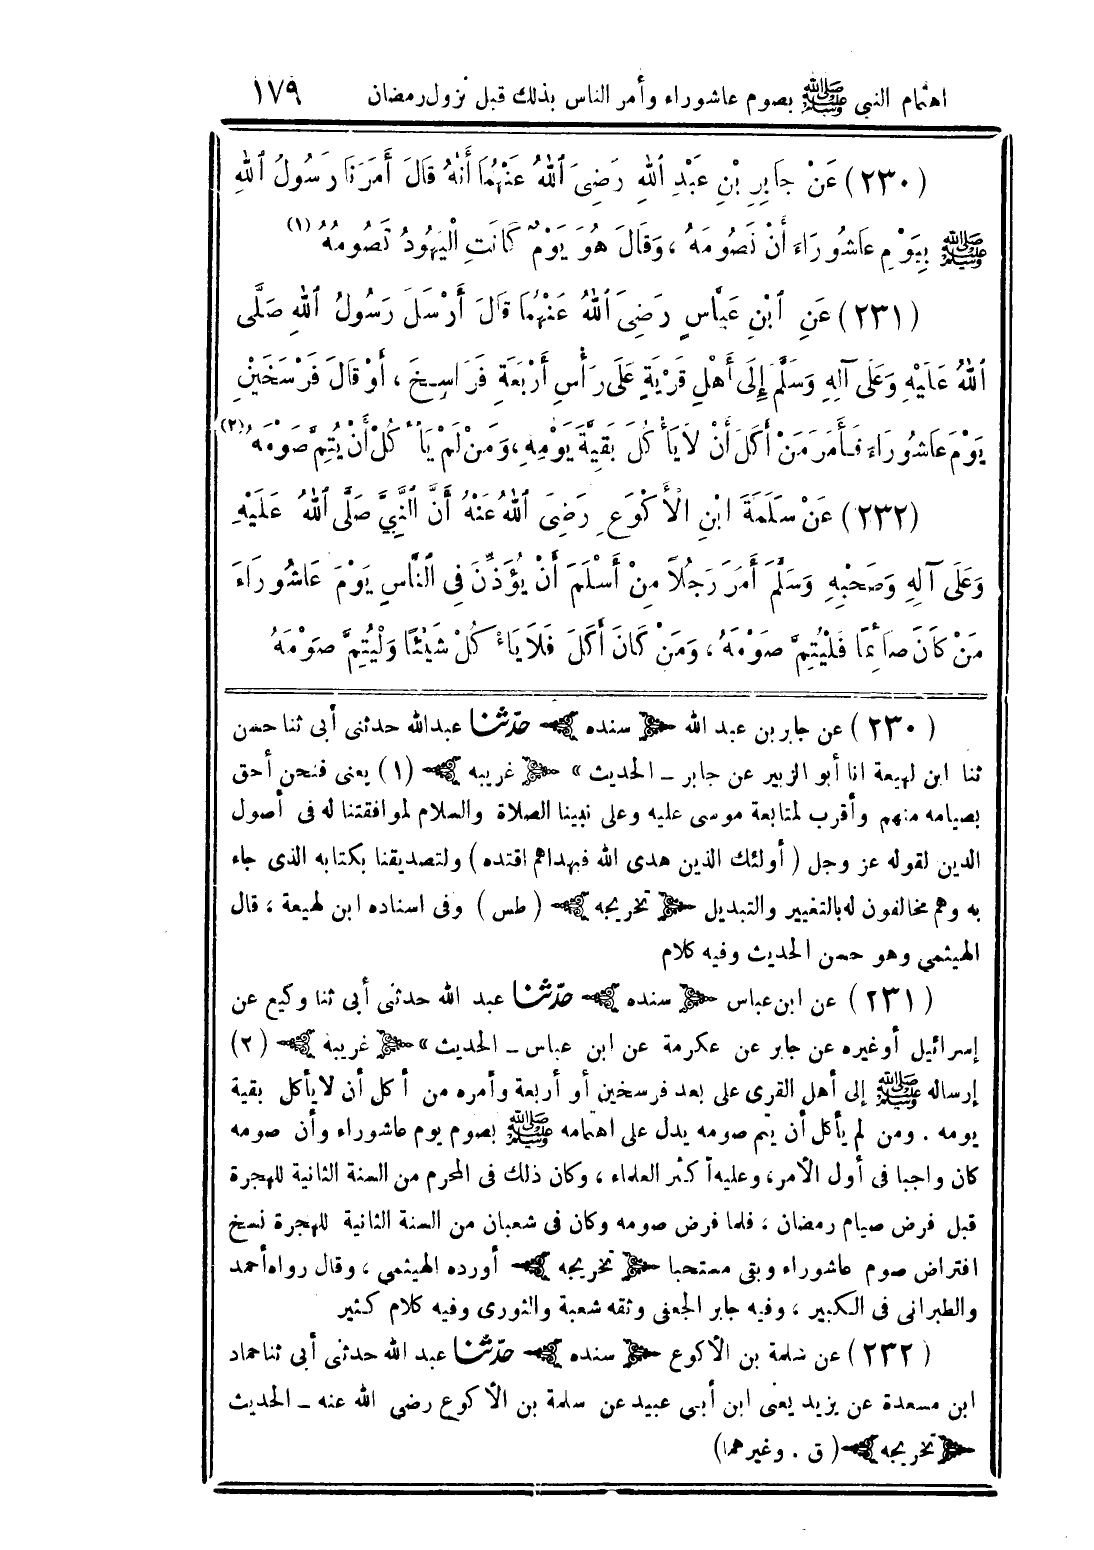 اهتمام النبي ﷺ بصوم عاشوراء وأمر الناس بذلك قبل نزول رمضان ١٧٩
(٢٣٠) عَنْ جَابِرِ بْنِ عَبْدِ اللهِ رَضِيَ اللهُ عَنْهُمَا أَنَّهُ قَالَ أَمَرَنَا رَسُولُ اللهِ
ﷺ بِيَوْمِ عَاشُورَاءَ أَنْ نَصُومَهُ ، وَقَالَ هُوَ يَوْمٌ كَانَتِ الْيَهُودُ تَصُومُهُ (١)
(٢٣١) عَنِ ابْنِ عَبَّاسٍ رَضِيَ اللهُ عَنْهُمَا قَالَ أَرْسَلَ رَسُولُ اللهِ صَلَّى
اللهُ عَلَيْهِ وَعَلَى آلِهِ وَسَلَّمَ إِلَى أَهْلِ قَرْيَةٍ عَلَى رَأْسِ أَرْبَعَةِ فَرَاسِخَ ، أَوْ قَالَ فَرْسَخَيْنِ
يَوْمَ عَاشُورَاءَ فَأَمَرَ مَنْ أَكَلَ أَنْ لَا يَأْكُلَ بَقِيَّةَ يَوْمِهِ ، وَمَنْ لَمْ يَأْكُلْ أَنْ يُتِمَّ صَوْمَهُ (٢)
(٢٣٢) عَنْ سَلَمَةَ ابْنِ الْأَكْوَعِ رَضِيَ اللهُ عَنْهُ أَنَّ النَّبِيَّ صَلَّى اللهُ عَلَيْهِ
وَعَلَى آلِهِ وَصَحْبِهِ وَسَلَّمَ أَمَرَ رَجُلًا مِنْ أَسْلَمَ أَنْ يُؤَذِّنَ فِي النَّاسِ يَوْمَ عَاشُورَاءَ
مَنْ كَانَ صَائِمًا فَلْيُتِمَّ صَوْمَهُ ، وَمَنْ كَانَ أَكَلَ فَلَا يَأْكُلْ شَيْئًا وَلْيُتِمَّ صَوْمَهُ
(٢٣٠) عن جابر بن عبد الله سنده حدّثنا عبد الله حدثنى أبى ثنا حسن
ثنا ابن لهيعة انا أبو الزبير عن جابر ــ الحديث » غريبه (١) يعنى فنحن أحق
بصيامه منهم وأقرب لمتابعة موسى عليه وعلى نبينا الصلاة والسلام لموافقتنا له فى أصول
الدين لقوله عز وجل (أولئك الذين هدى الله فبهداهم اقتده) ولتصديقنا بكتابه الذى جاء
به وهم مخالفون له بالتغيير والتبديل تخريجه (طس) وفى اسناده ابن لهيعة ، قال
الهيثمي وهو حسن الحديث وفيه كلام
(٢٣١) عن ابن عباس سنده حدّثنا عبد الله حدثنى أبى ثنا وكيع عن
إسرائيل أوغيره عن جابر عن عكرمة عن ابن عباس ــ الحديث » غريبه (٢)
إرساله ﷺ إلى أهل القرى على بعد فرسخين أو أربعة وأمره من أكل أن لا يأكل بقية
يومه . ومن لم يأكل أن يتم صومه يدل على اهتمامه ﷺ بصوم يوم عاشوراء وأن صومه
كان واجبا فى أول الأمر، وعليه أكثر العلماء ، وكان ذلك فى المحرم من السنة الثانية للهجرة
قبل فرض صيام رمضان ، فلما فرض صومه وكان فى شعبان من السنة الثانية للهجرة نسخ
افتراض صوم عاشوراء وبقى مستحبا تخريجه أورده الهيثمي ، وقال رواه أحمد
والطبرانى فى الكبير ، وفيه جابر الجعفى وثقه شعبة والثورى وفيه كلام كثير
(٢٣٢) عن سلمة بن الأكوع سنده حدّثنا عبد الله حدثنى أبى ثنا حماد
ابن مسعدة عن يزيد يعنى ابن أبي عبيد عن سلمة بن الأكوع رضي الله عنه ــ الحديث
تخريجه (ق . وغيرهما)